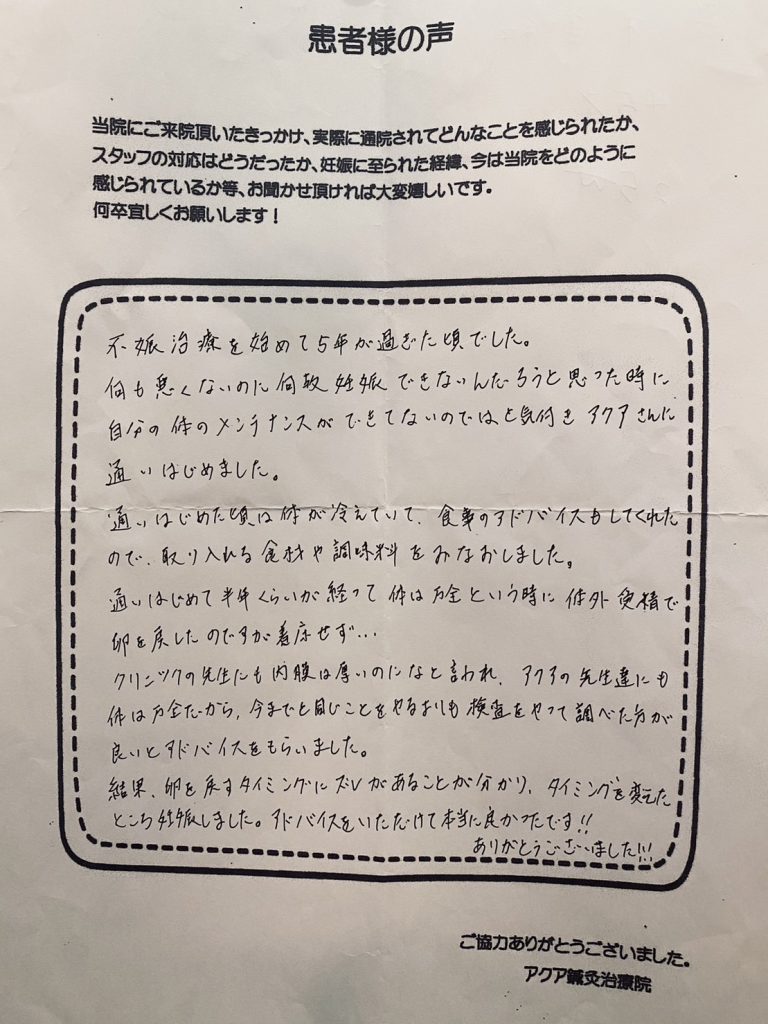 患者様の声
当院にご来院頂いたきっかけ、実際に通院されてどんなことを感じられたか、
スタッフの対応はどうだったか、妊娠に至られた経緯、今は当院をどのように
感じられているか等、お聞かせ頂ければ大変嬉しいです。
何卒宜しくお願いします!
不妊治療を始めて5年が過ぎた頃でした。
何も悪くないのに何故妊娠できないんだろうと思った時に
自分の体のメンテナンスができてないのではと気付きアクアさんに
通いはじめました。
通いはじめた頃は体が冷えていて、食事のアドバイスもしてくれた
ので、取り入れる食材や調味料をみなおしました。
通いはじめて半年くらいが経って体は万全という時に体外受精で
卵を戻したのですが着床せず…
クリニックの先生にも内膜は厚いのになと言われ、アクアの先生達にも
体は万全だから、今までと同じことをやるよりも検査をやって調べた方が
良いとアドバイスをもらいました。
結果、卵を戻すタイミングにズレがあることが分かり、タイミングを変えた
ところ妊娠しました。アドバイスをいただけて本当に良かったです!!
ありがとうございました!!!
ご協力ありがとうございました。
アクア鍼灸治療院